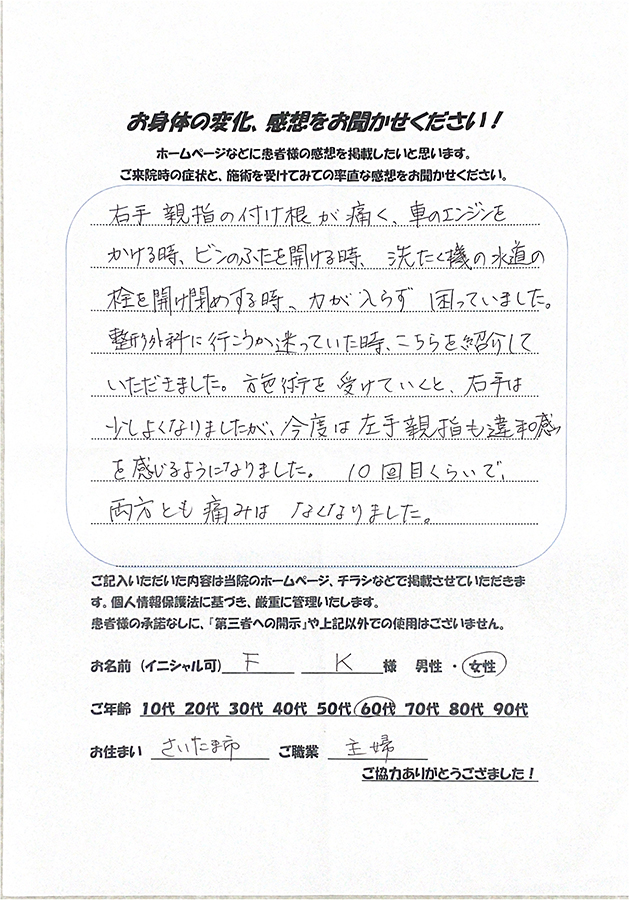 お身体の変化、感想をお聞かせください！
ホームページなどに患者様の感想を掲載したいと思います。
ご来院時の症状と、施術を受けてみての率直な感想をお聞かせください。
右手 親指の付け根が痛く、車のエンジンを
かける時、ビンのふたを開ける時、洗たく機の水道の
栓を開け閉めする時、力が入らず 困っていました。
整形外科に行こうか迷っていた時、こちらを紹介して
いただきました。施術を受けていくと、右手は
少しよくなりましたが、今度は左手親指も違和感
を感じるようになりました。 10回目くらいで、
両方とも痛みは なくなりました。
ご記入いただいた内容は当院のホームページ、チラシなどで掲載させていただきま
す。個人情報保護法に基づき、厳重に管理いたします。
患者様の承諾なしに、「第三者への開示」や上記以外での使用はございません。
お名前（イニシャル可） F K 様 男性 ・ 女性
ご年齢 10代 20代 30代 40代 50代 60代 70代 80代 90代
お住まい さいたま市 ご職業 主婦
ご協力ありがとうござました！